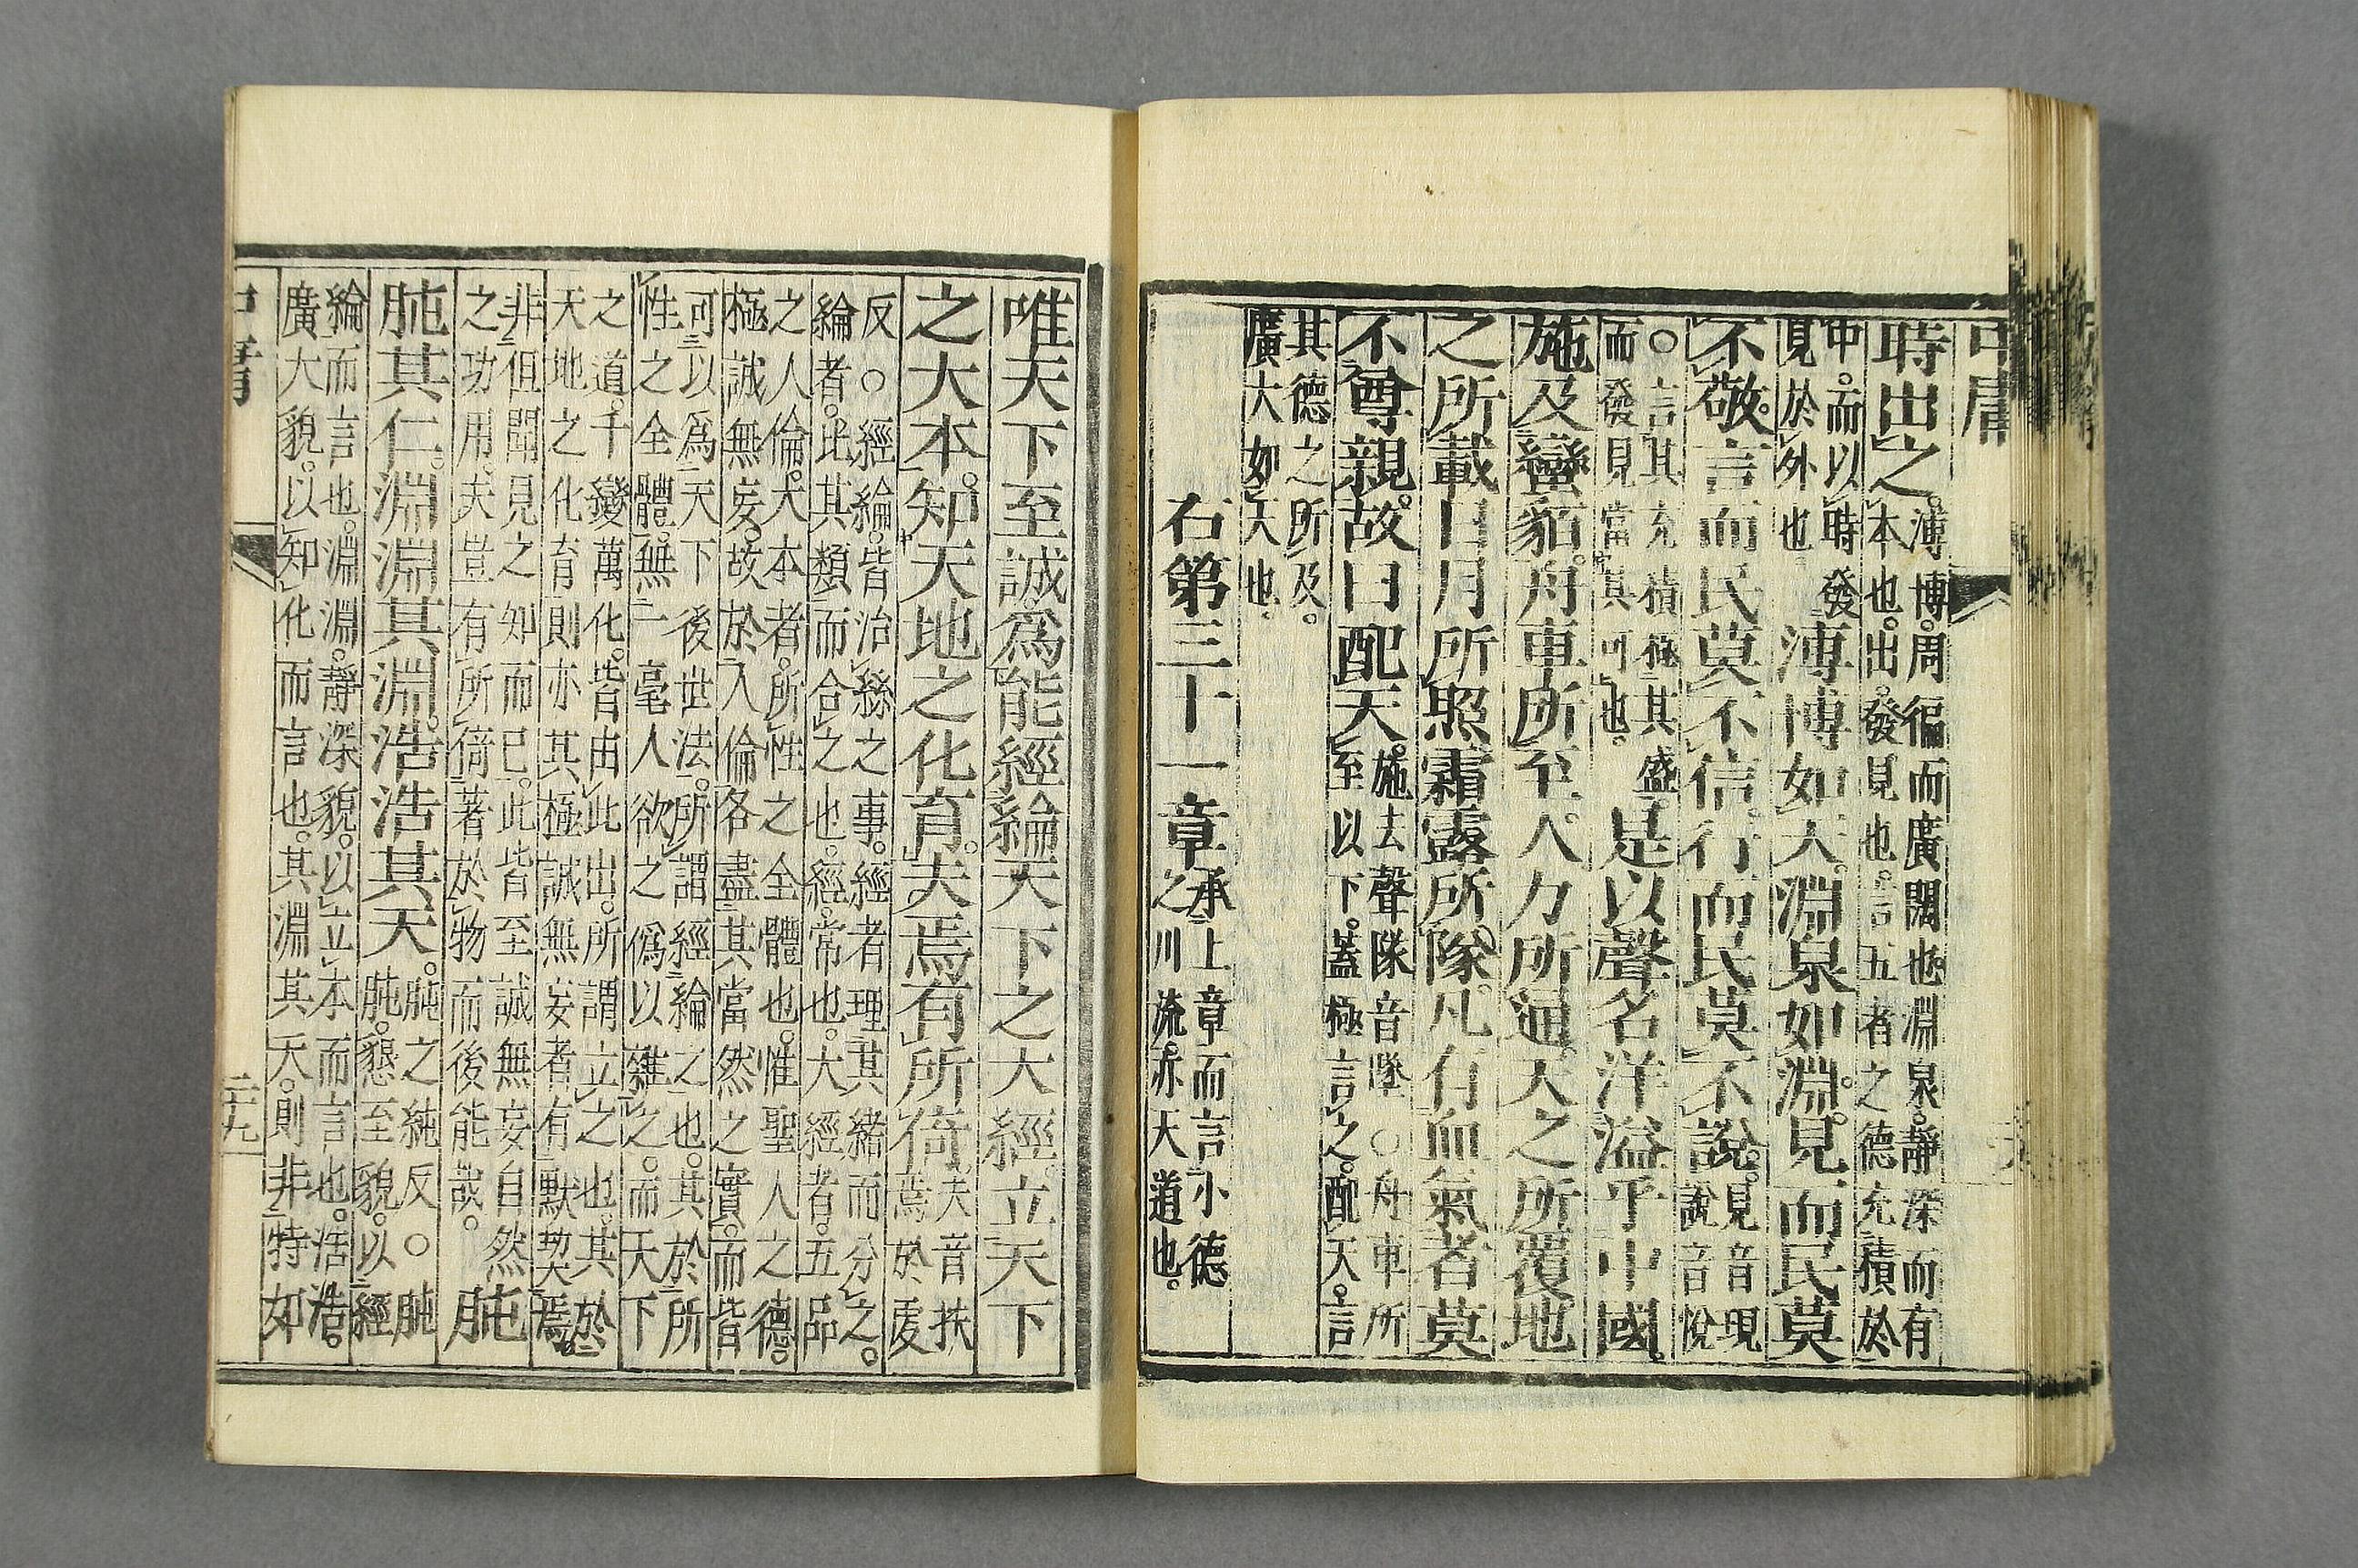 中庸
時出之。溥博。周徧而廣闊也。淵泉。靜深而有
本也。出。發見也。言五者之德充積於
中。而以時發
見於外也
溥博如天。淵泉如淵。見而民莫
不敬。言而民莫不信。行而民莫不說。見音現
說音悅
○言其充積極其盛
而發見當其可也。
是以聲名洋溢乎中國。
施及蠻貊。舟車所至。人力所通。天之所覆地
之所載日月所照霜露所隊。凡有血氣者莫
不尊親。故曰配天。施去聲隊音墜○舟車所
至以下。蓋極言之。配天。言
其德之所及。
廣大如天也。
右第三十一章承上章而言小德
之川流。亦天道也。
唯天下至誠。爲能經綸天下之大經。立天下
之大本。知天地之化育。夫焉有所倚。夫音扶
焉於虔
反○經綸。皆治絲之事。經者理其緒而分之。
綸者。比其類而合之也。經。常也。大經者。五品
之人倫。大本者。所性之全體也。惟聖人之德。
極誠無妄。故於人倫各盡其當然之實。而皆
可以爲天下後世法。所謂經綸之也。其於所
性之全體。無一毫人欲之僞以雜之。而天下
之道。千變萬化。皆由此出。所謂立之也。其於
天地之化育。則亦其極誠無妄者有默契焉。
非但聞見之知而已。此皆至誠無妄自然
之功用。夫豈有所倚著於物而後能哉。
肫
肫其仁。淵淵其淵。浩浩其天。肫之純反○肫
肫。懇至貌。以經
綸而言也。淵淵。靜深貌。以立本而言也。浩浩。
廣大貌。以知化而言也。其淵其天。則非特如
中庸
二十九